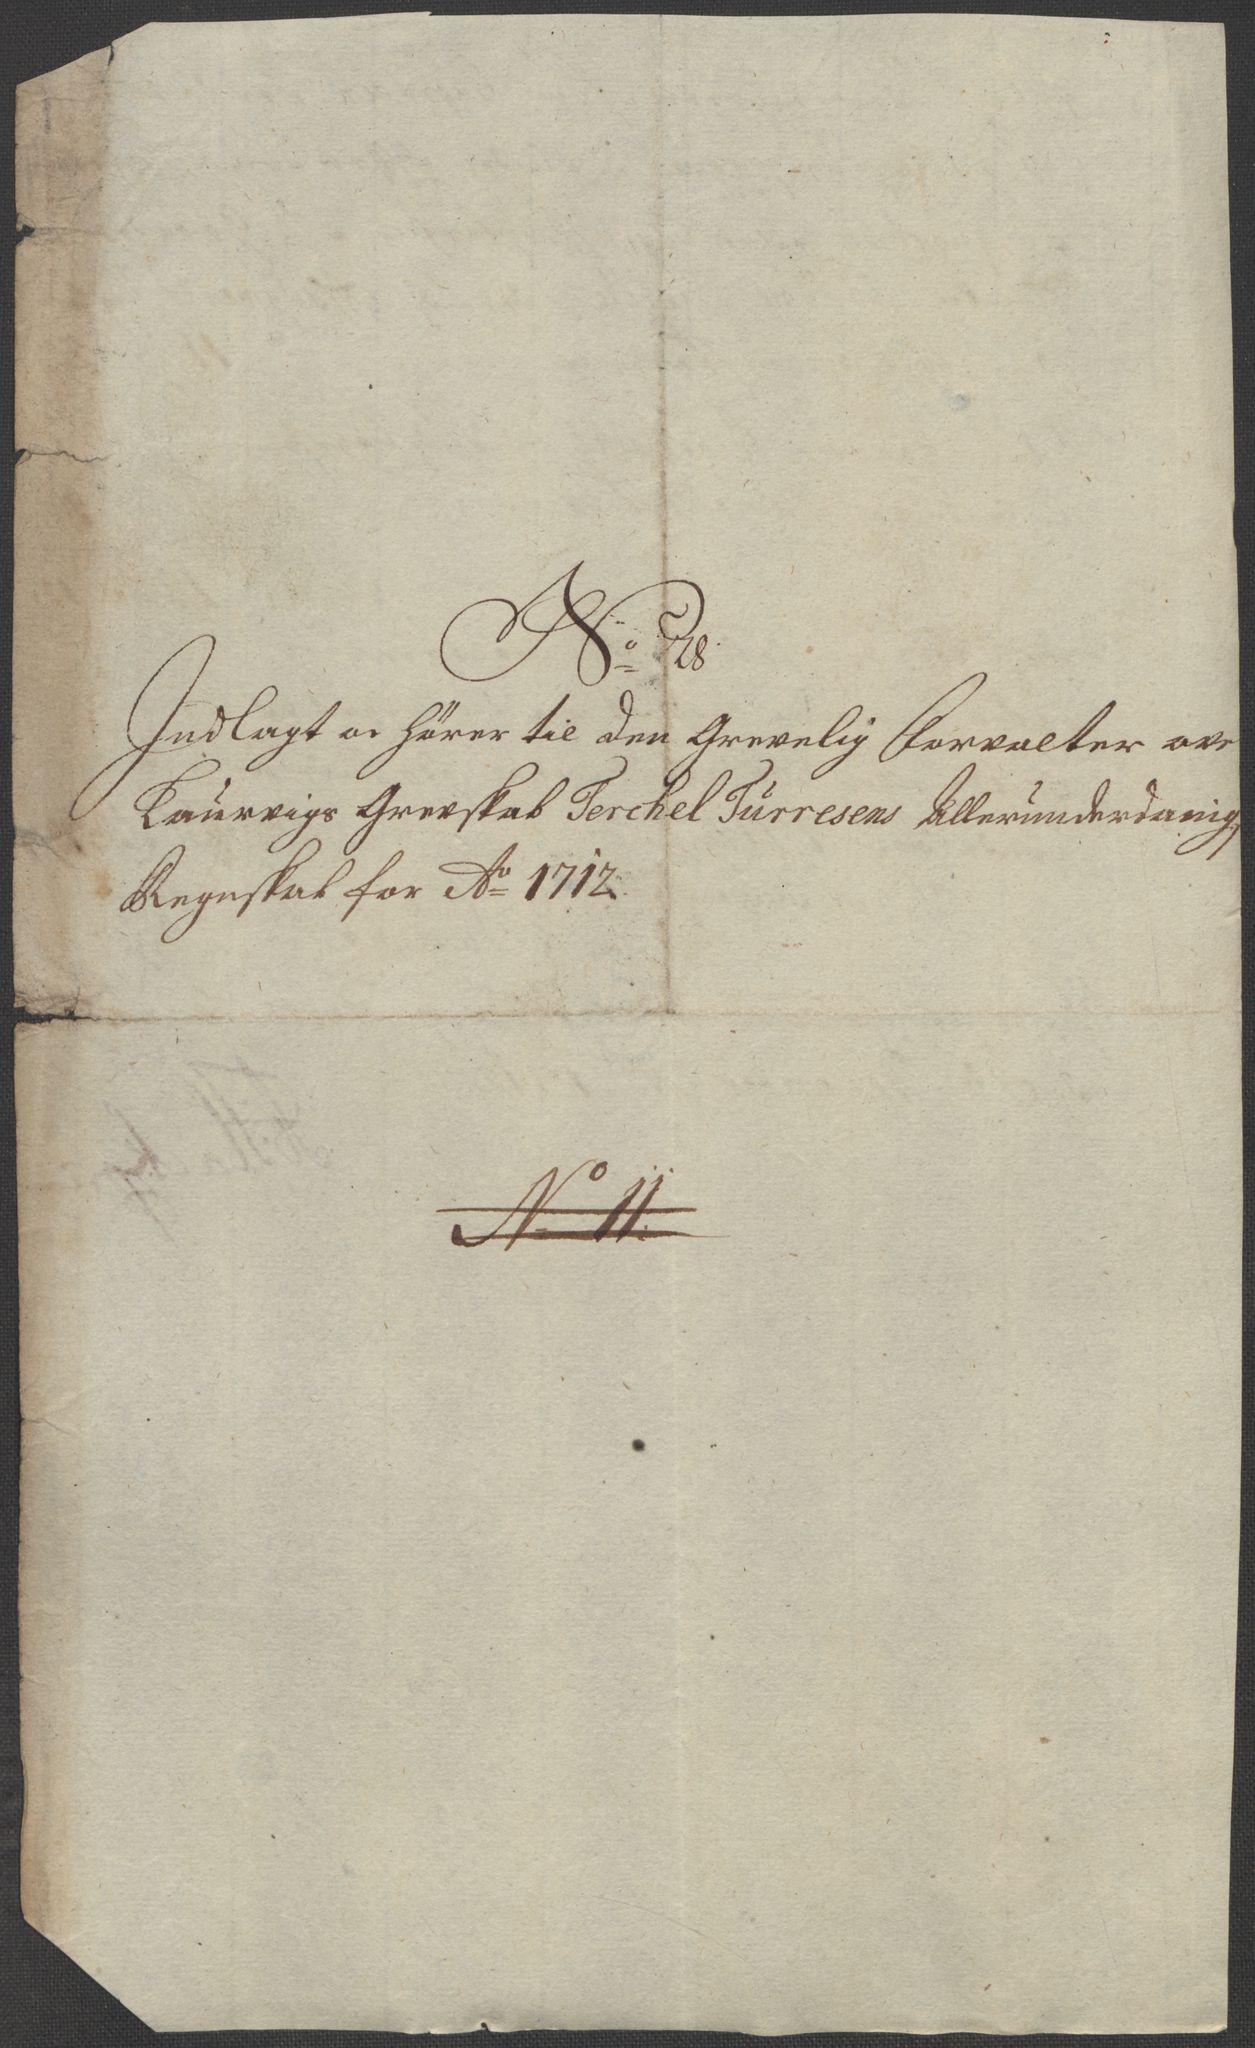 No 28.
Indlagt oc hörer til den Grevelig Forvalter ove
Laurvigs Grevskab Terchel Türresens Allerunderdanig
Regnskab for Ao 1712.
No 11.